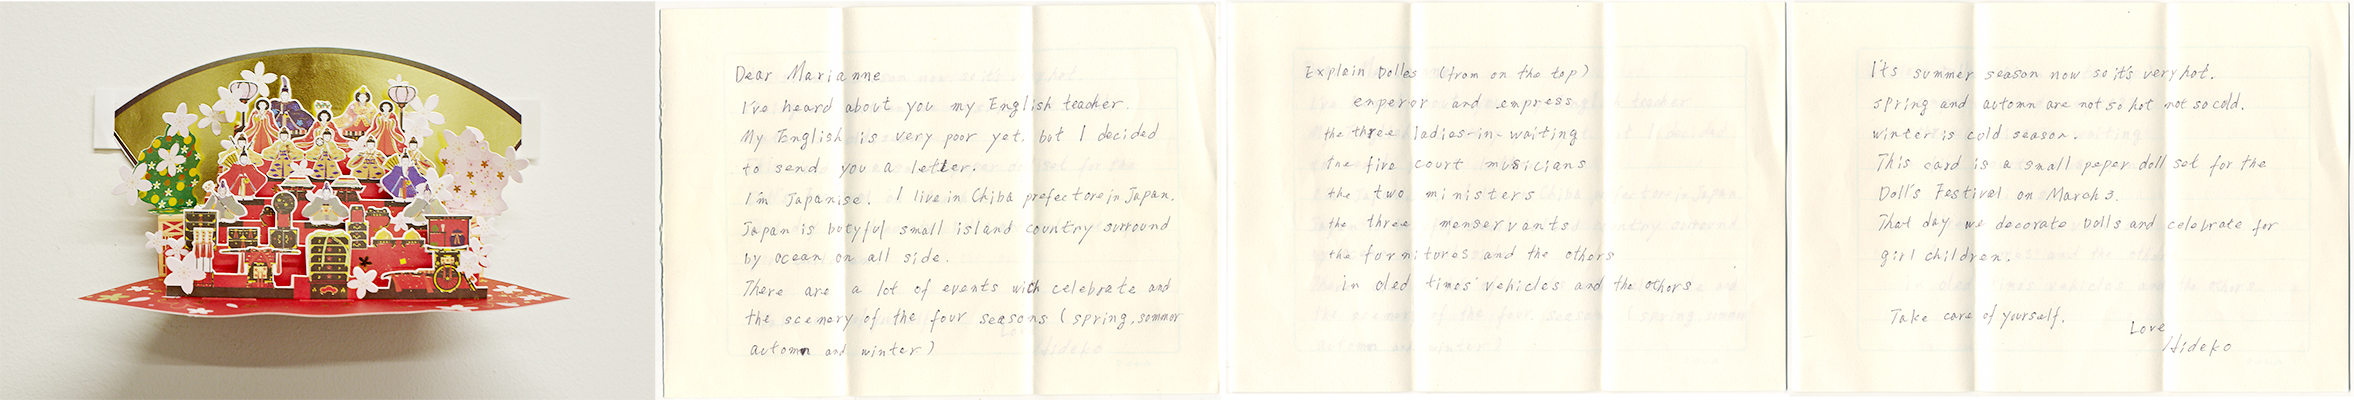 Dear Marianne
I've heard about you my English teacher.
My English is very poor yet. but I decided
to send you a letter.
I'm Japanise. I live in Chiba prefectore in Japan.
Japan is butyful small island country surround
by ocean on all side.
There are a lot of events with celebrate and
the scenery of the four seasons (spring, sommor
automn and winter)
Explain Dolles (from on the top)
emperor and empress
the three ladies-in-waiting
the five court musicians
the two ministers
the three menservants
the furnitures and the others
in oled times' vehicles and the others
It's summer season now so it's very hot.
spring and automn are not so hot not so cold.
winter is cold season.
This card is a small peper doll set for the
Doll's Festival on March 3.
That day we decorate Dolls and celebrate for
girl children.
Take care of yourself.
Love
Hideko